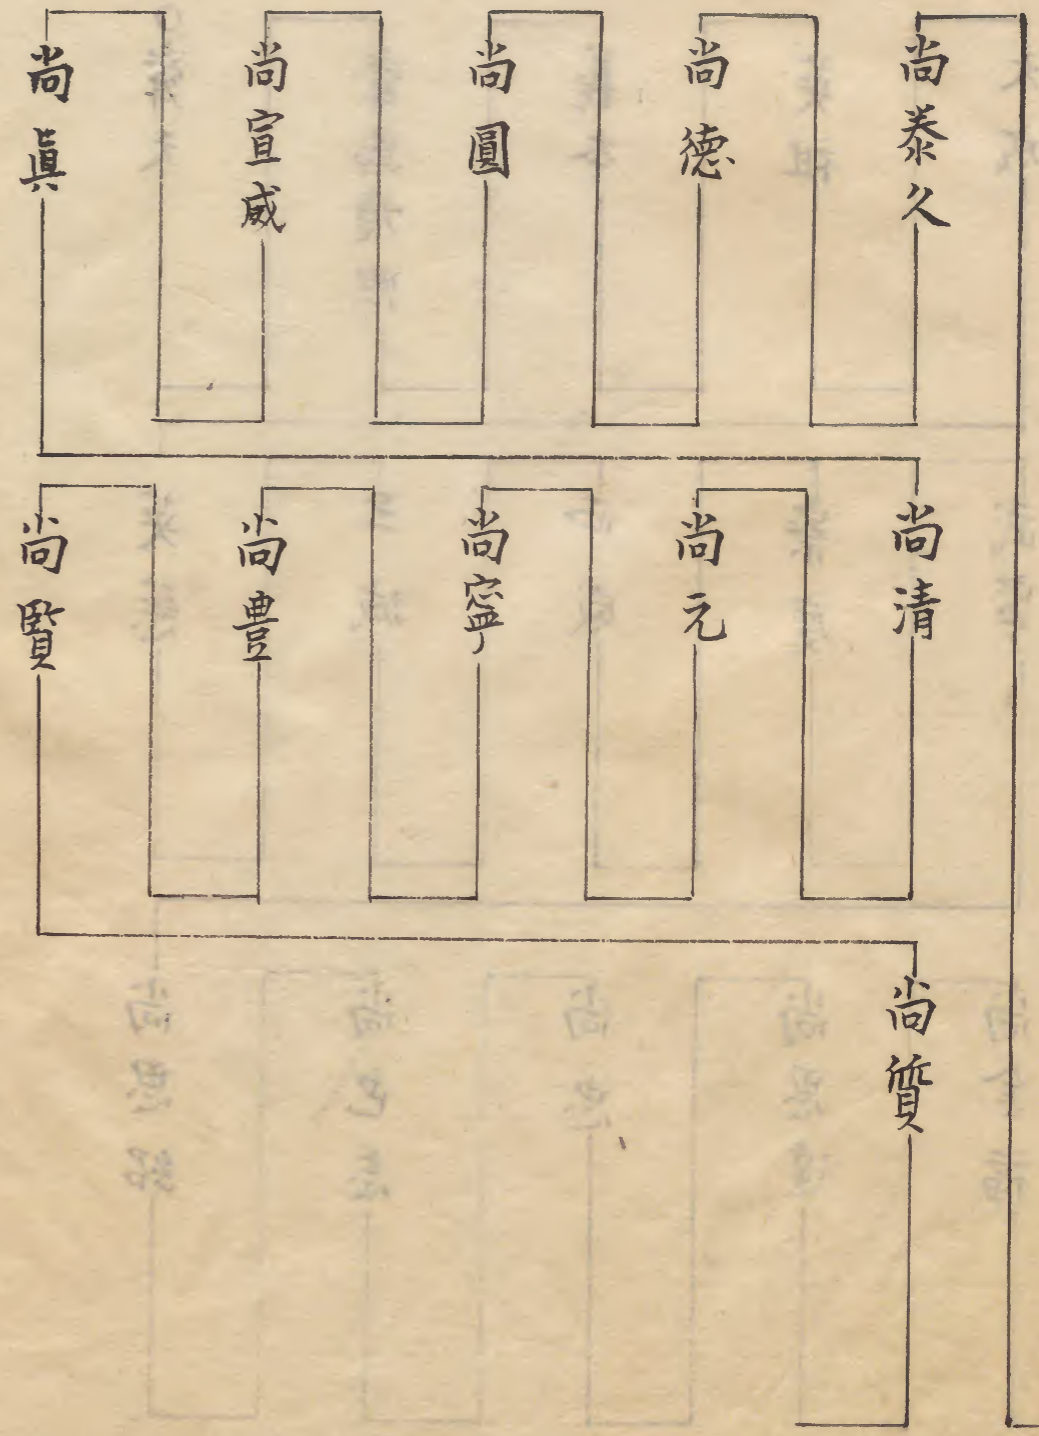 尚泰久
尚德
尚圓
尚宣威
尚眞
尚清
尚元
尚寧
尚豊
尚賢
尚質